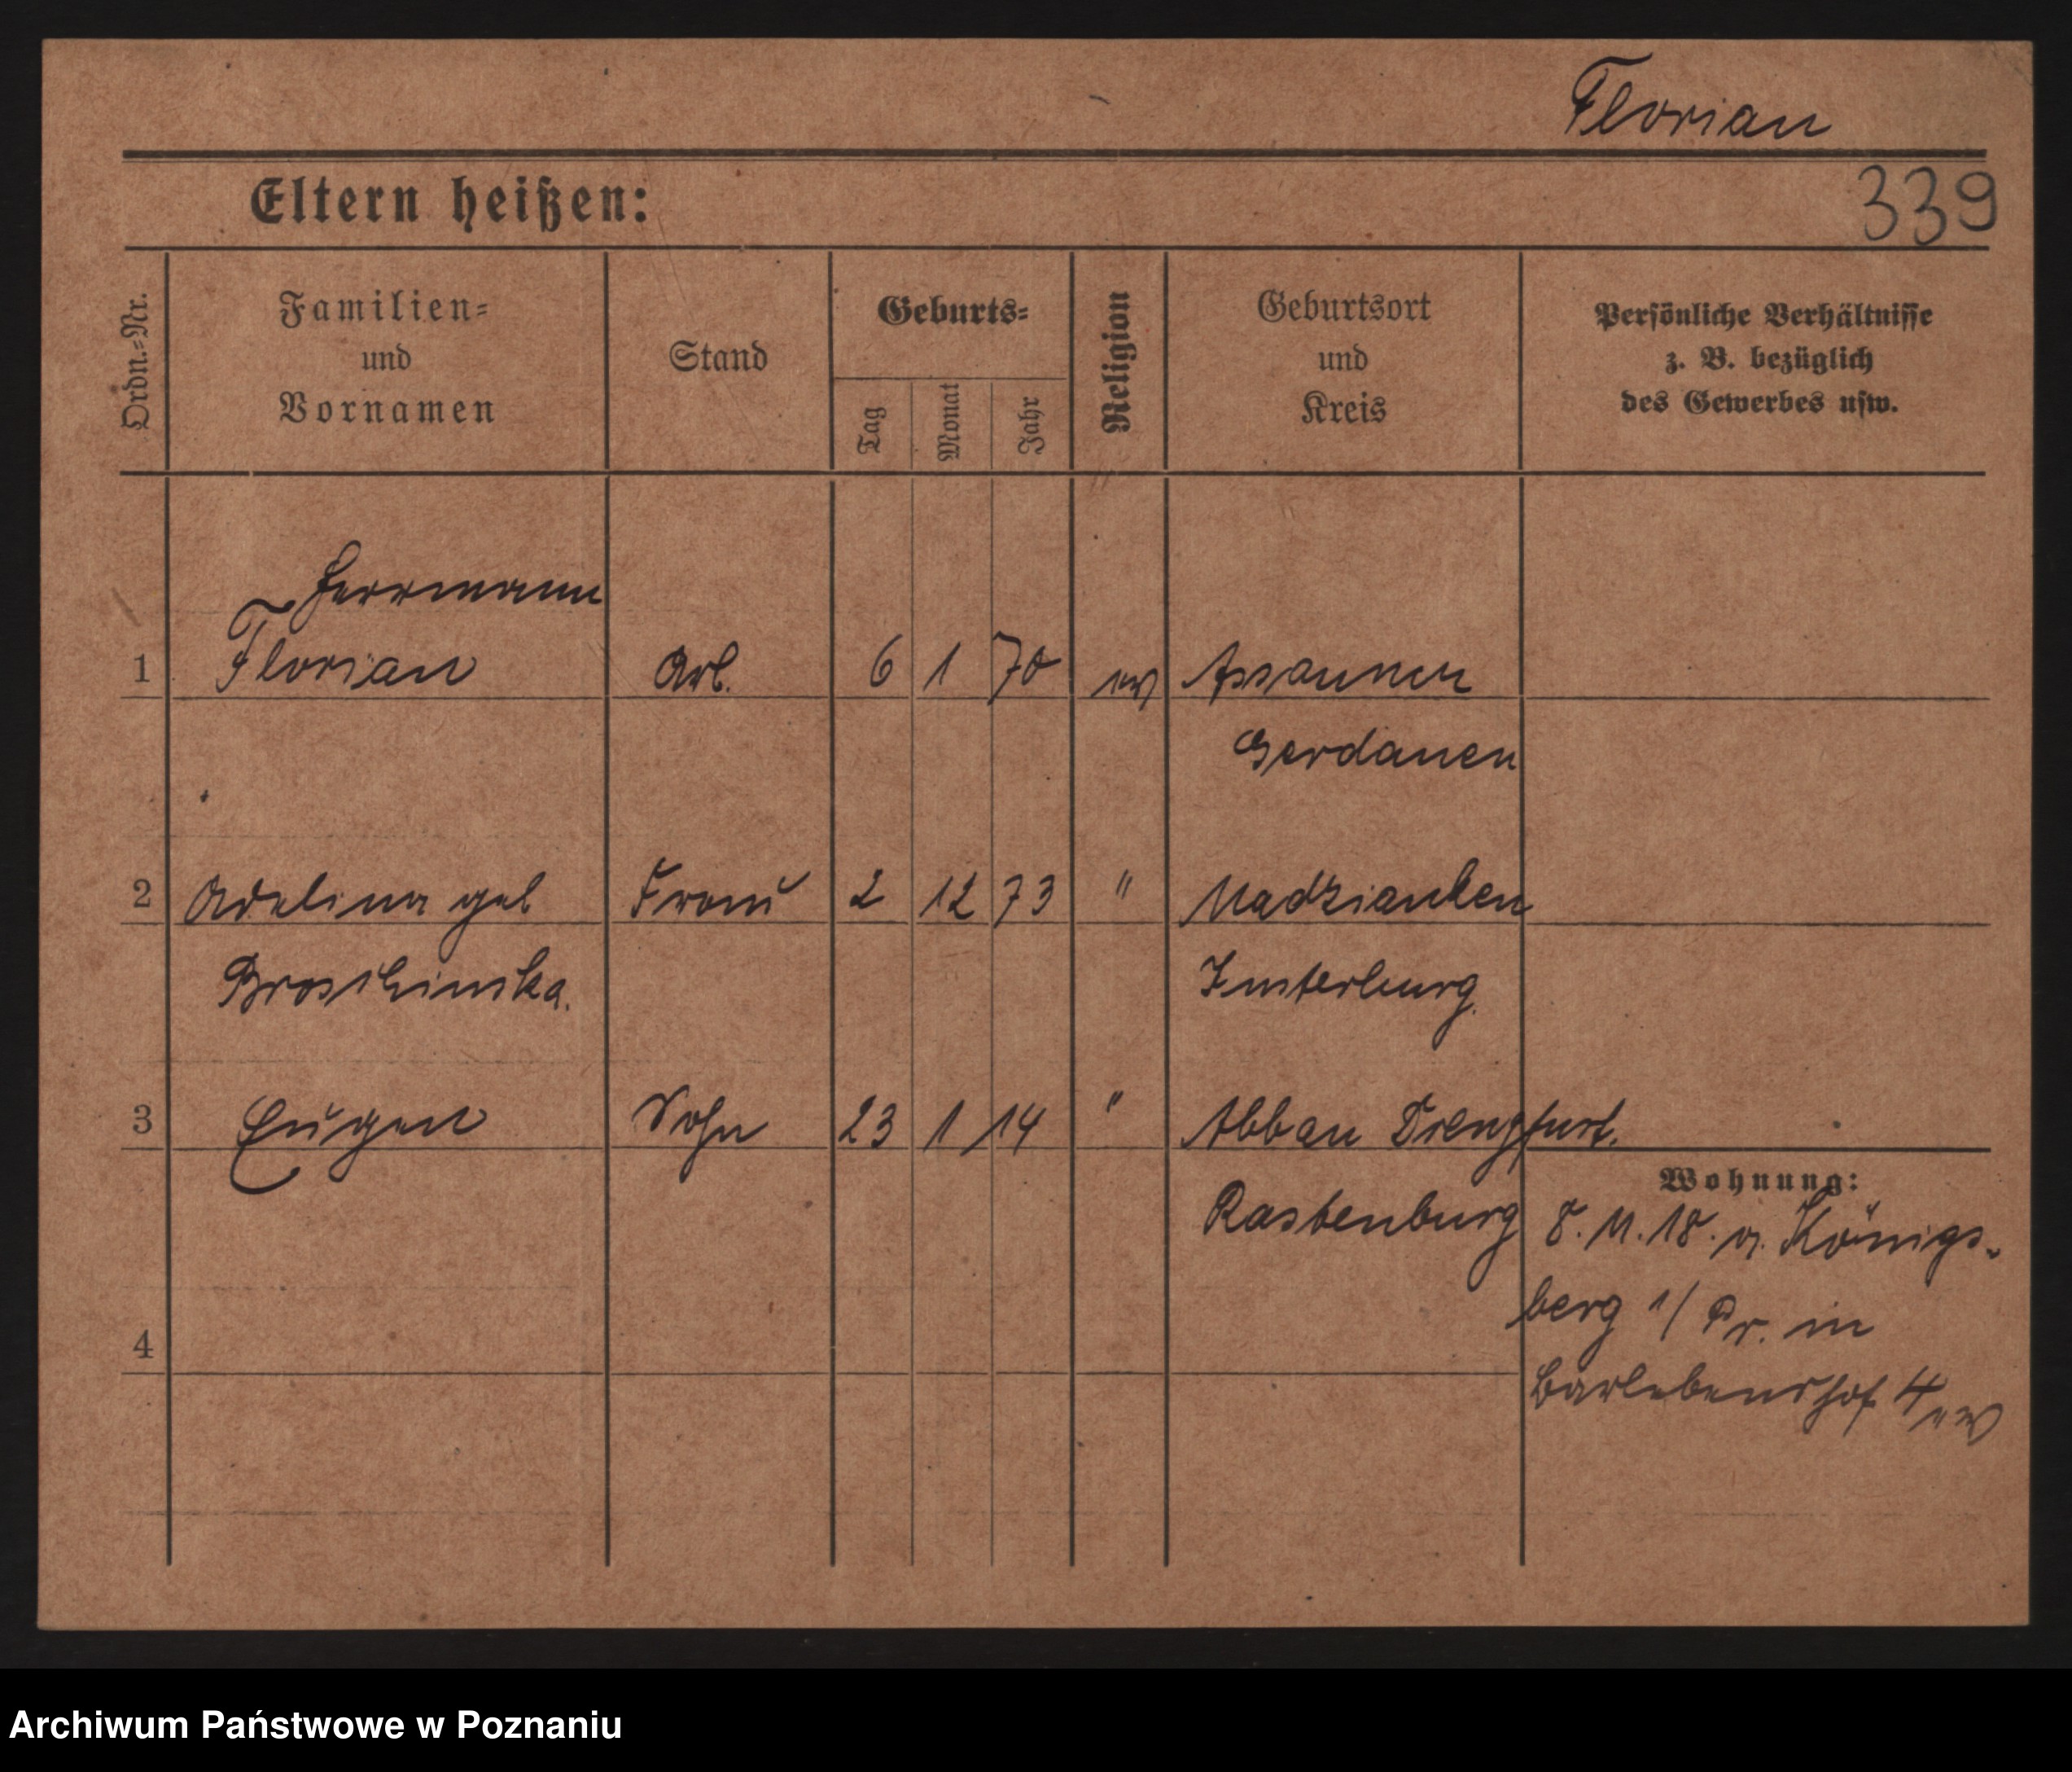 Florian
Eltern heißen:
339
Ordn.=Nr.
Familien=
und
Vornamen
Stand
Geburts=
Tag
Monat
Jahr
Religion
Geburtsort
und
Kreis
Persönliche Verhältnisse
z. B. bezüglich
des Gewerbes usw.
Herrmann
1 Florian Arb. 6 1 70 ev Assaunen
Gerdauen
2 Adelina geb Frau 2 12 73 "
Insterburg.
3 Eugen Sohn 23 1 14 " Abbau Drengfurt.
Wohnung:
Rastenburg
8. 11. 18. a. Königs-
berg i/ Pr. in
4
Barlebenshof 4
Archiwum Państwowe w Poznaniu